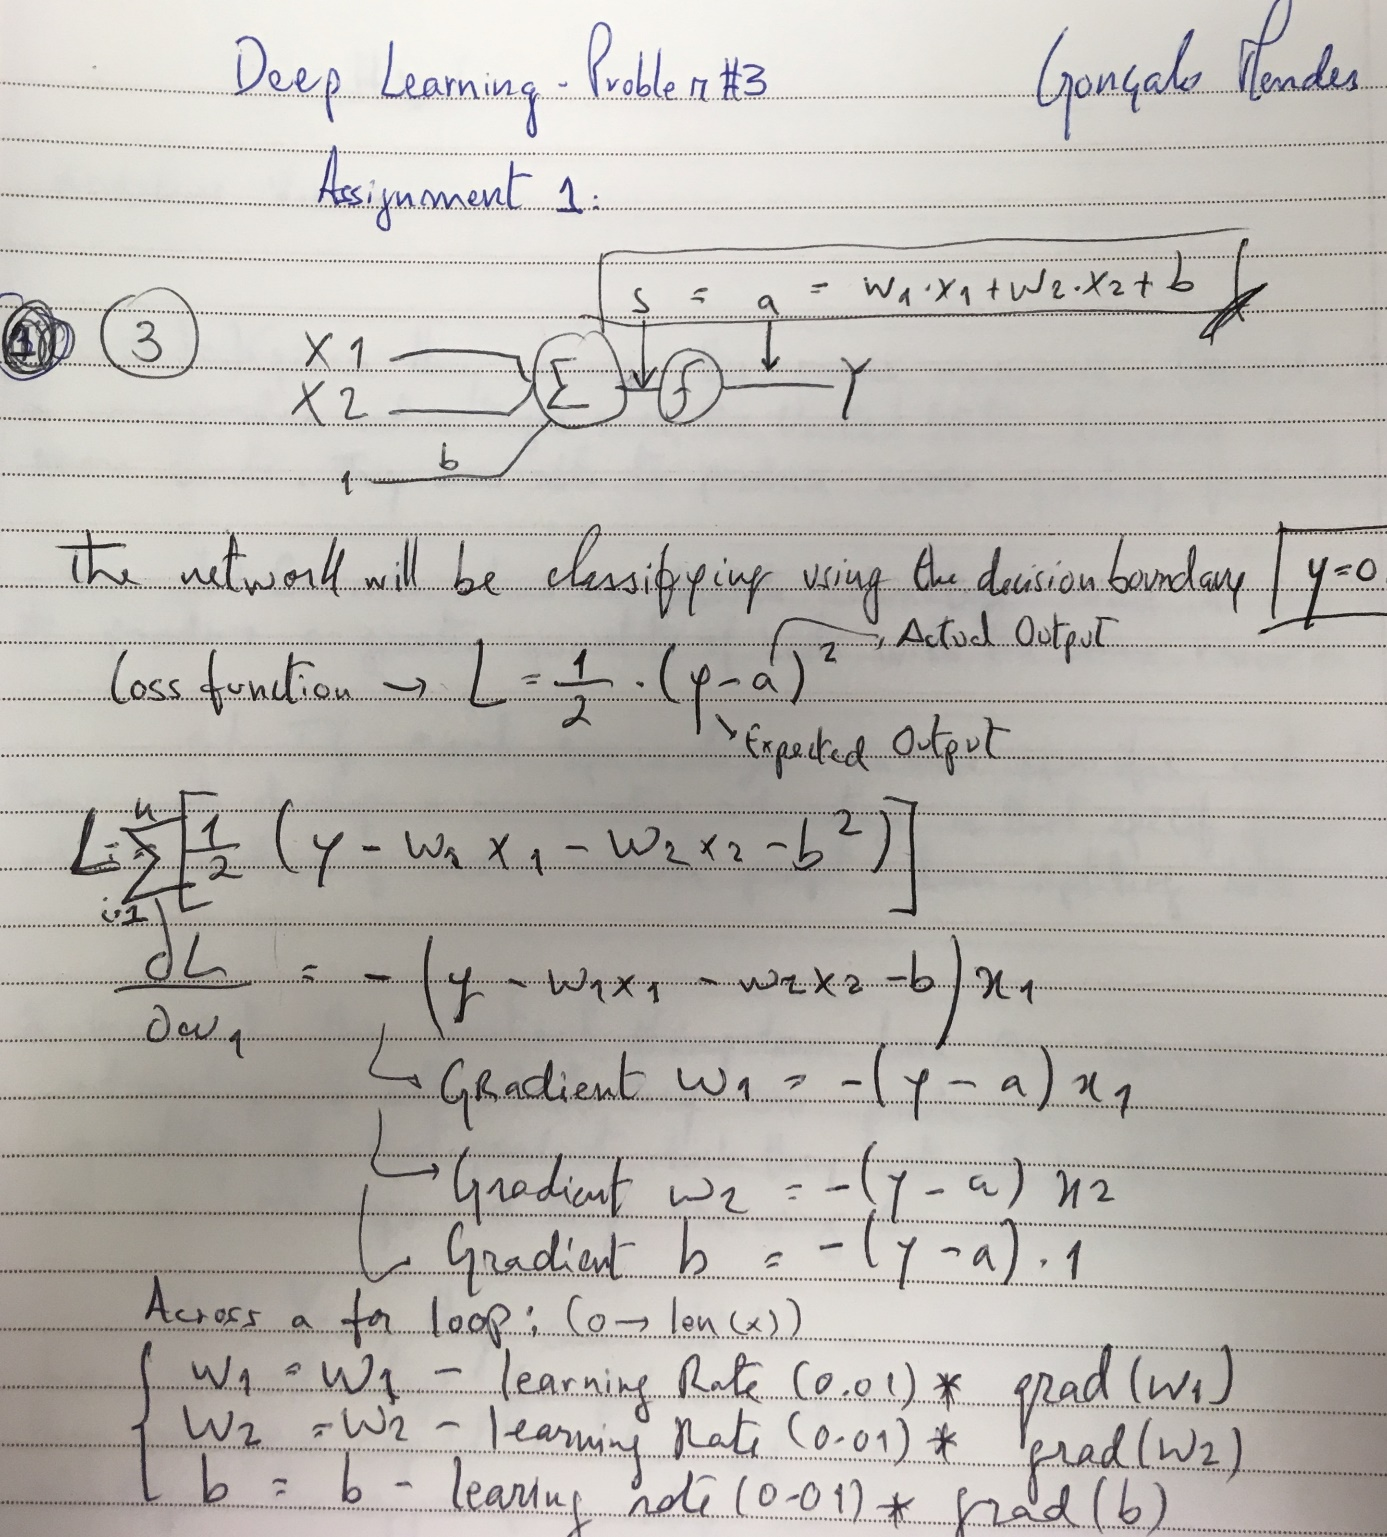 Deep Learning - Problem #3 Gonçalo Mendes
Assignment 1:
s = a = w1·x1+w2·x2+b
3
X1
X2
Σ f Y
b
1
The network will be classifying using the decision boundary y=0
Actual Output
Loss function → L = 1/2 · (y-a)²
Expected Output
L = Σ(i=1, n) [1/2 (y - w1 x1 - w2 x2 - b²)]
∂L/∂w1 = -(y - w1x1 - w2x2 - b) x1
Gradient w1 = -(y - a) x1
Gradient w2 = -(y - a) x2
Gradient b = -(y - a) . 1
Across a for loop: (0→ len(x))
w1 = w1 - learning Rate (0.01) * grad(w1)
w2 = w2 - learning Rate (0.01) * grad(w2)
b = b - learning rate (0.01) * grad(b)